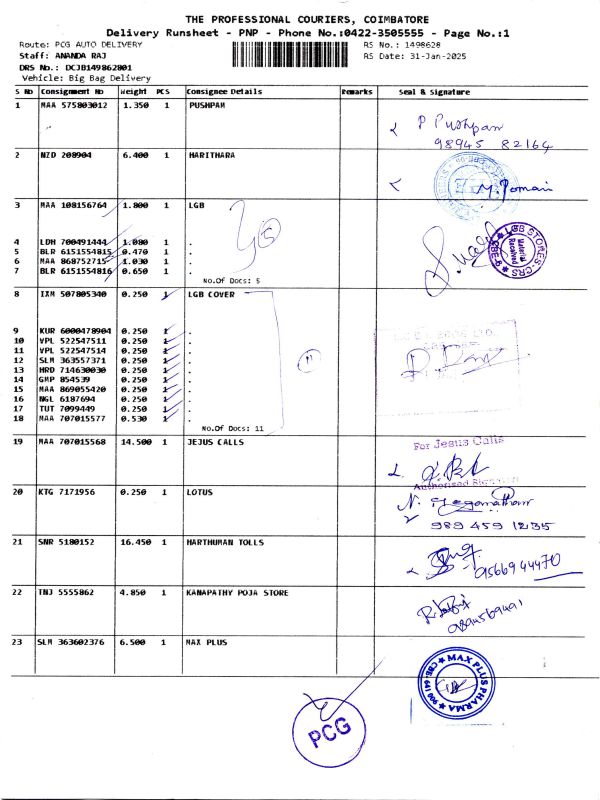 THE PROFESSIONAL COURIERS, COIMBATORE
Delivery Runsheet - PNP - Phone No.:0422-3505555 - Page No.:1
Route: PCG AUTO DELIVERY
RS No.: 1498628
Staff: ANANDA RAJ
RS Date: 31-Jan-2025
DRS No.: DCJB149862801
Vehicle: Big Bag Delivery
S No Consignment No Weight PCS Consignee Details Remarks Seal & Signature
1 MAA 575803012 1.350 1 PUSHPAM
P Pushpam
98945 82164
2 NZD 208904 6.400 1 HARITHARA
3 MAA 108156764 1.800 1 LGB
5
LGB STORES-CRS
Material Received
CBE-9
4 LDH 700491444 1.080 1 .
5 BLR 6151554815 0.470 1 .
6 MAA 868752715 1.030 1 .
7 BLR 6151554816 0.650 1 .
No.Of Docs: 5
8 IXM 507805340 0.250 1 LGB COVER
9 KUR 6000478904 0.250 1 .
10 VPL 522547511 0.250 1 .
11 VPL 522547514 0.250 1 .
12 SLM 363557371 0.250 1 .
13 HRD 714630030 0.250 1 .
14 GMP 854539 0.250 1 .
15 MAA 869055420 0.250 1 .
16 NGL 6187694 0.250 1 .
17 TUT 7099449 0.250 1 .
18 MAA 707015577 0.530 1 .
No.Of Docs: 11
11
19 MAA 707015568 14.500 1 JEJUS CALLS
For Jesus Calls
Authorised
20 KTG 7171956 0.250 1 LOTUS
989 459 1235
21 SNR 5180152 16.450 1 HARTHUMAN TOLLS
9566944470
22 TNJ 5555862 4.850 1 KANAPATHY POJA STORE
23 SLM 363602376 6.500 1 MAX PLUS
MAX PLUS PHARMA
CBE-641 009
PCG